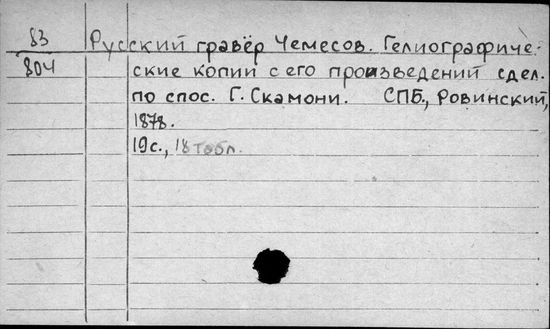 83 Русский гравёр Чемесов. Гелиографиче-
804 ские копии с его произведений сдел.
по спос. Г. Скамони. СПБ., Ровинский,
1878.
19с., 18 табл.